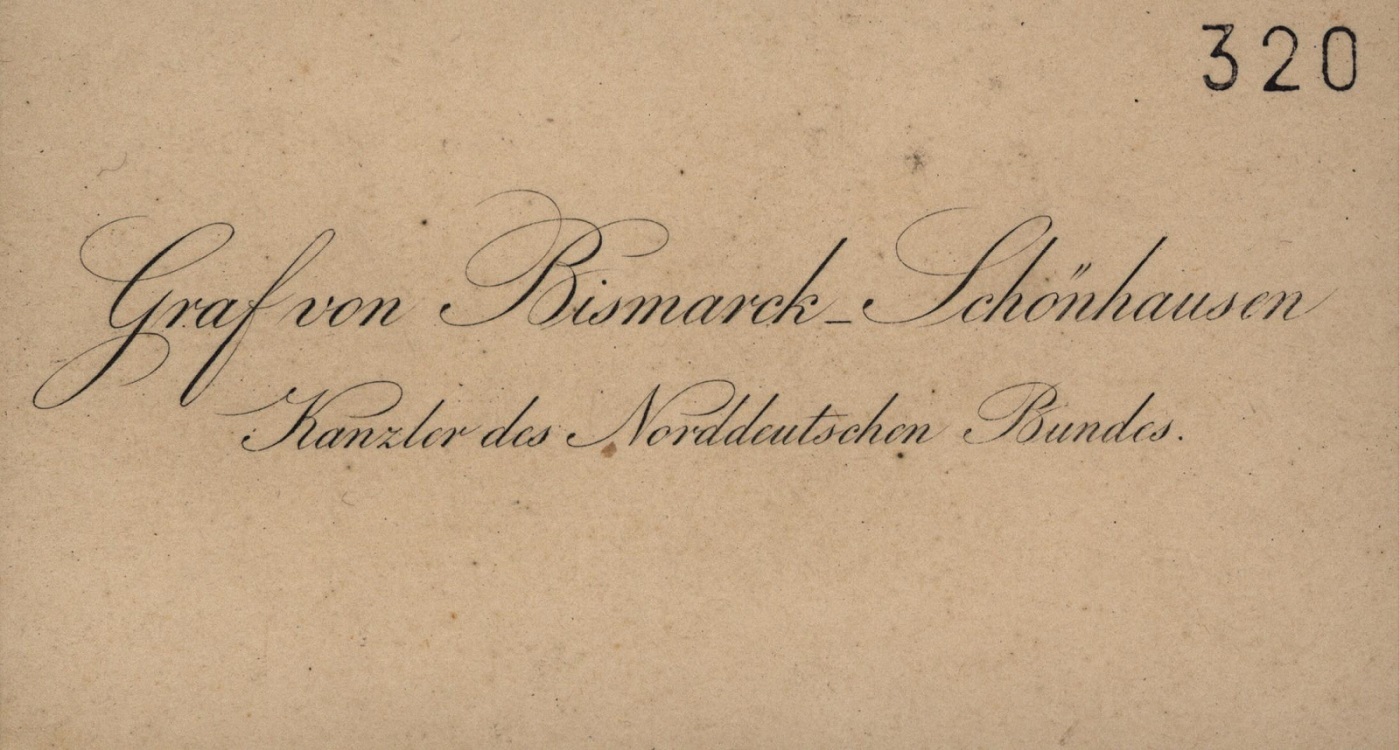 320
Graf von Bismarck-Schönhausen
Kanzler des Norddeutschen Bundes.